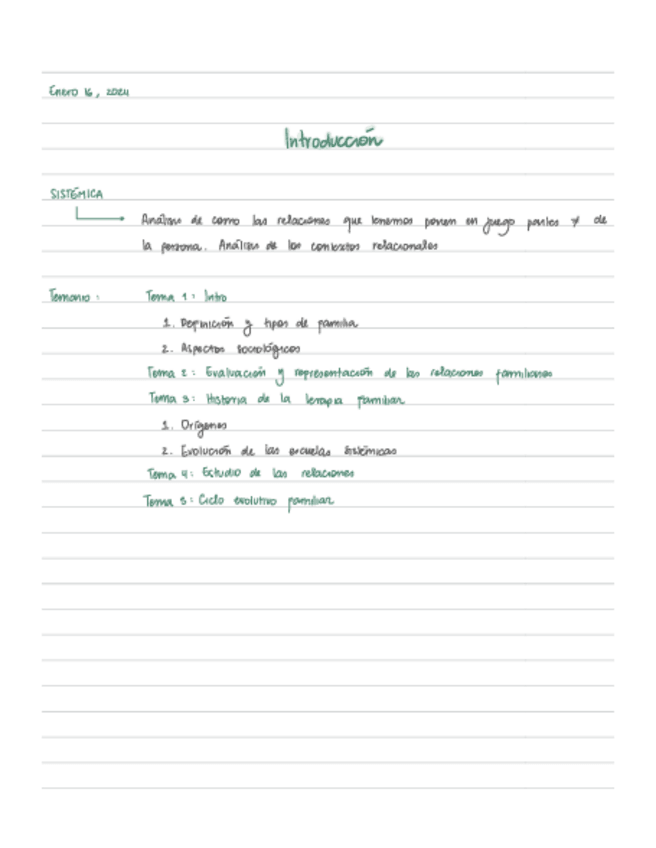 Enero 16, 2024
Introducción
SISTÉMICA
Análisis de como las relaciones que tenemos ponen en juego partes ≠ de
la persona. Análisis de los contextos relacionales
Temario: Tema 1: Intro
1. Definición y tipos de familia
2. Aspectos sociológicos
Tema 2: Evaluación y representación de las relaciones familiares
Tema 3: Historia de la terapia familiar
1. Orígenes
2. Evolución de las escuelas sistémicas
Tema 4: Estudio de las relaciones
Tema 5: Ciclo evolutivo familiar